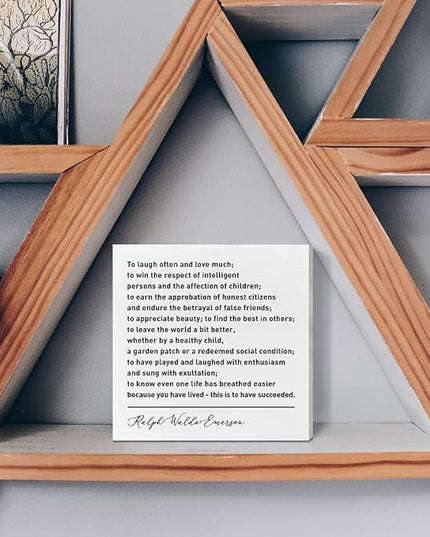 To laugh often and love much;
to win the respect of intelligent
persons and the affection of children;
to earn the approbation of honest citizens
and endure the betrayal of false friends;
to appreciate beauty; to find the best in others;
to leave the world a bit better,
whether by a healthy child,
a garden patch or a redeemed social condition;
to have played and laughed with enthusiasm
and sung with exultation;
to know even one life has breathed easier
because you have lived - this is to have succeeded.
Ralph Waldo Emerson